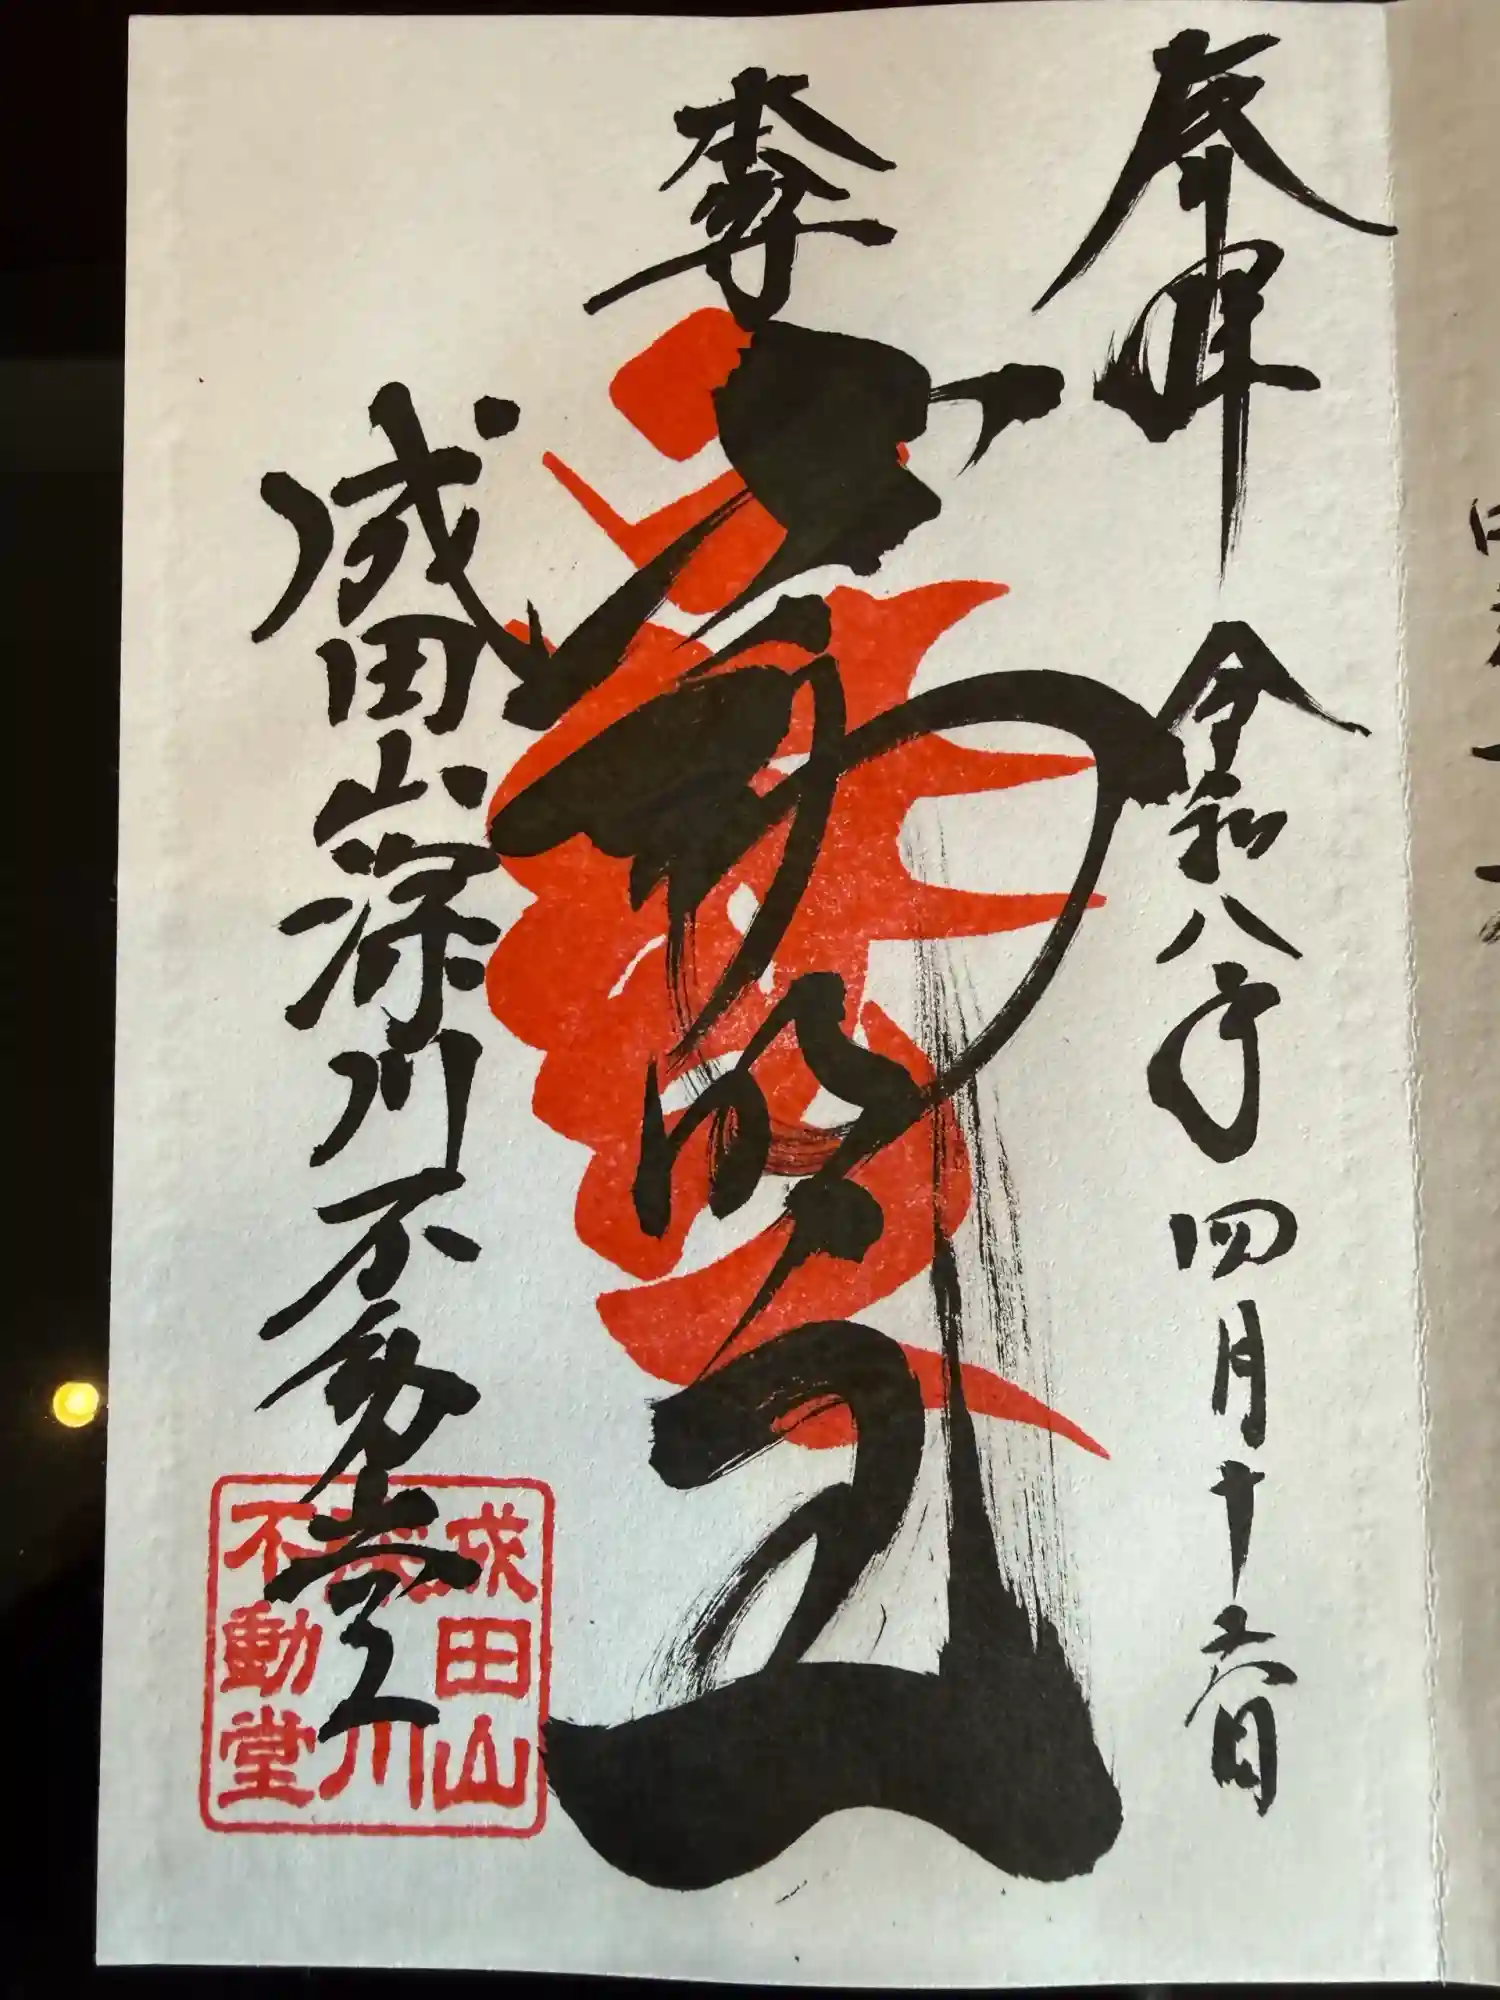 奉拝 令和八年四月十六日
本尊
不動明王
成田山深川不動堂
成田山
深川
不動堂